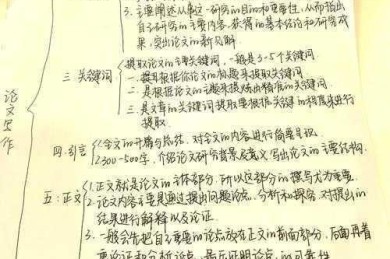 3. 主要阐述从事这一研究的目和重要性，从而指出
自己研究的主要内容，获得的基本结论和研究成
果，突出论文的新见解
论文写作
三：关键词
提取论文的主要关键词，一般是3-5个关键词
一. 提取根据你论文的标题来提取关键词
二. 是根据论文的主题来提炼出精准的关键词
三. 是文章的关键词提取要根据关键词的频率来进行
提取.
四：引言
1. 全文的开篇与总括，对全文的内容进行简要导读
2. 300-500字，介绍论文研究背景及意义写出论文的主要结构.
五：正文
1. 正文就是论文的主体部分，所以这部分的撰写尤为重要.
2. 论文内容主要是通过提出问题论点，分析和探究，对提出的
结果进行解释以及论证.
3. 一般会先把自己重要的论点放在正文的前面部分，后面再着
重论证和分析论点，最后证明论点的可靠性